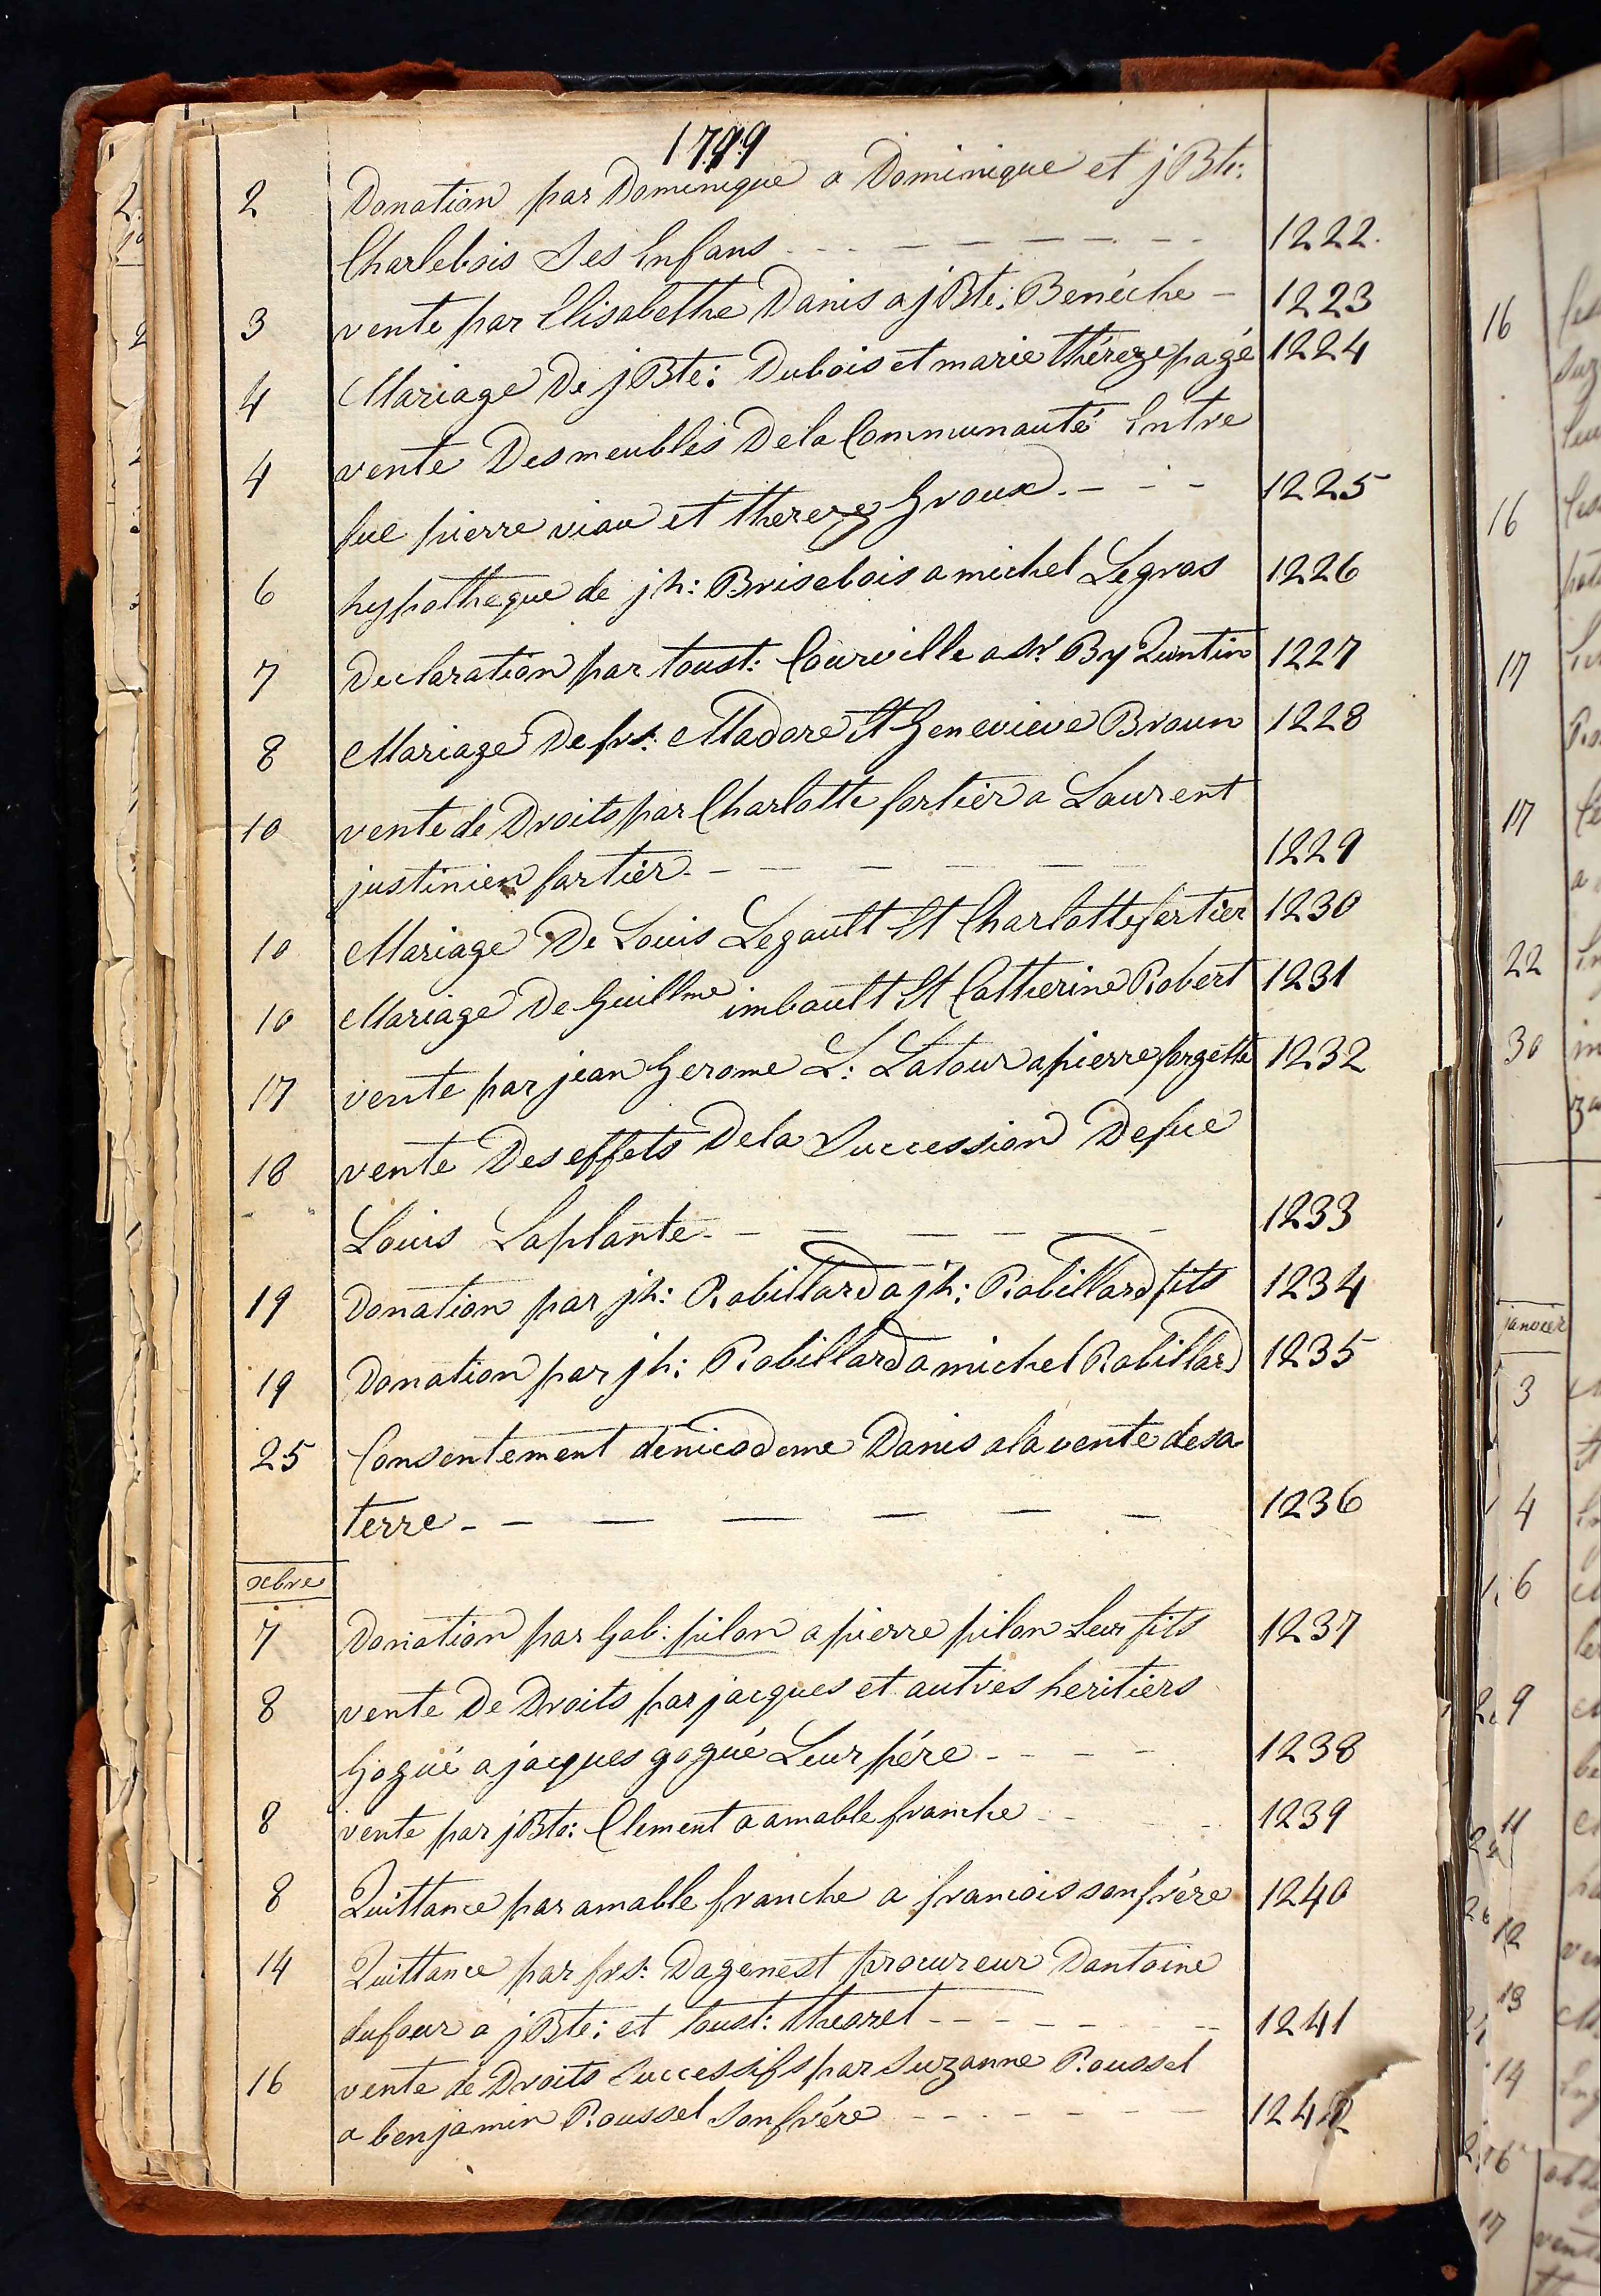 1799
2 Donation par Dominique a Dominique et j Bte:
Charlebois Ses Enfans - - - - - - - 1222.
3 vente par Elisabethe Danis a j Bte: Benéche - 1223
4 Mariage De j Bte: Dubois et marie théreze pagé 1224
4 vente Des meubles De la Communauté Entre
fue pierre viau et thereze Groux. - - - 1225
6 hypotheque de jh: Brisebois a michel Legros 1226
7 Declaration par toust: Courville a Sr. By Quntin 1227
8 Mariage De frs: Madore Et Genevieve Braun 1228
10 vente de Droits par Charlotte fortier a Laurent
justinien fortier. - - - - - 1229
10 Mariage De Louis Legault Et Charlotte fortier 1230
10 Mariage De Guillme imbault Et Catherine Robert 1231
17 vente par jean Gerome L: Latour a pierre forgette 1232
18 vente Des effets De la Succession De fue
Louis Laplante. - - - - - - 1233
19 Donation par jh: Robillard a jh: Robillard fils 1234
19 Donation par jh: Robillard a michel Robillard 1235
25 Consentement de nicodeme Danis a la vente de sa
terre - - - - - - - 1236
xbre
7 Donation par Gab: pilon a pierre pilon Leur fils 1237
8 vente De Droits par jacques et autres heritiers
Gogué a jacques gogué Leur pére - - - - 1238
8 vente par j Bte: Clement a amable franche - - 1239
8 Quittance par amable franche a francois son frére 1240
14 Quittance par frs: Dagenest procureur Dantoine
dufour a j Bte: et toust: theoret - - - - - - - 1241
16 vente de Droits Successifs par Suzanne Roussel
a benjamin Roussel Son frére - - - - - - - 1242
16
16
17
17
22
30
janvier
3
4
6
9
11
12
13
14
16
17